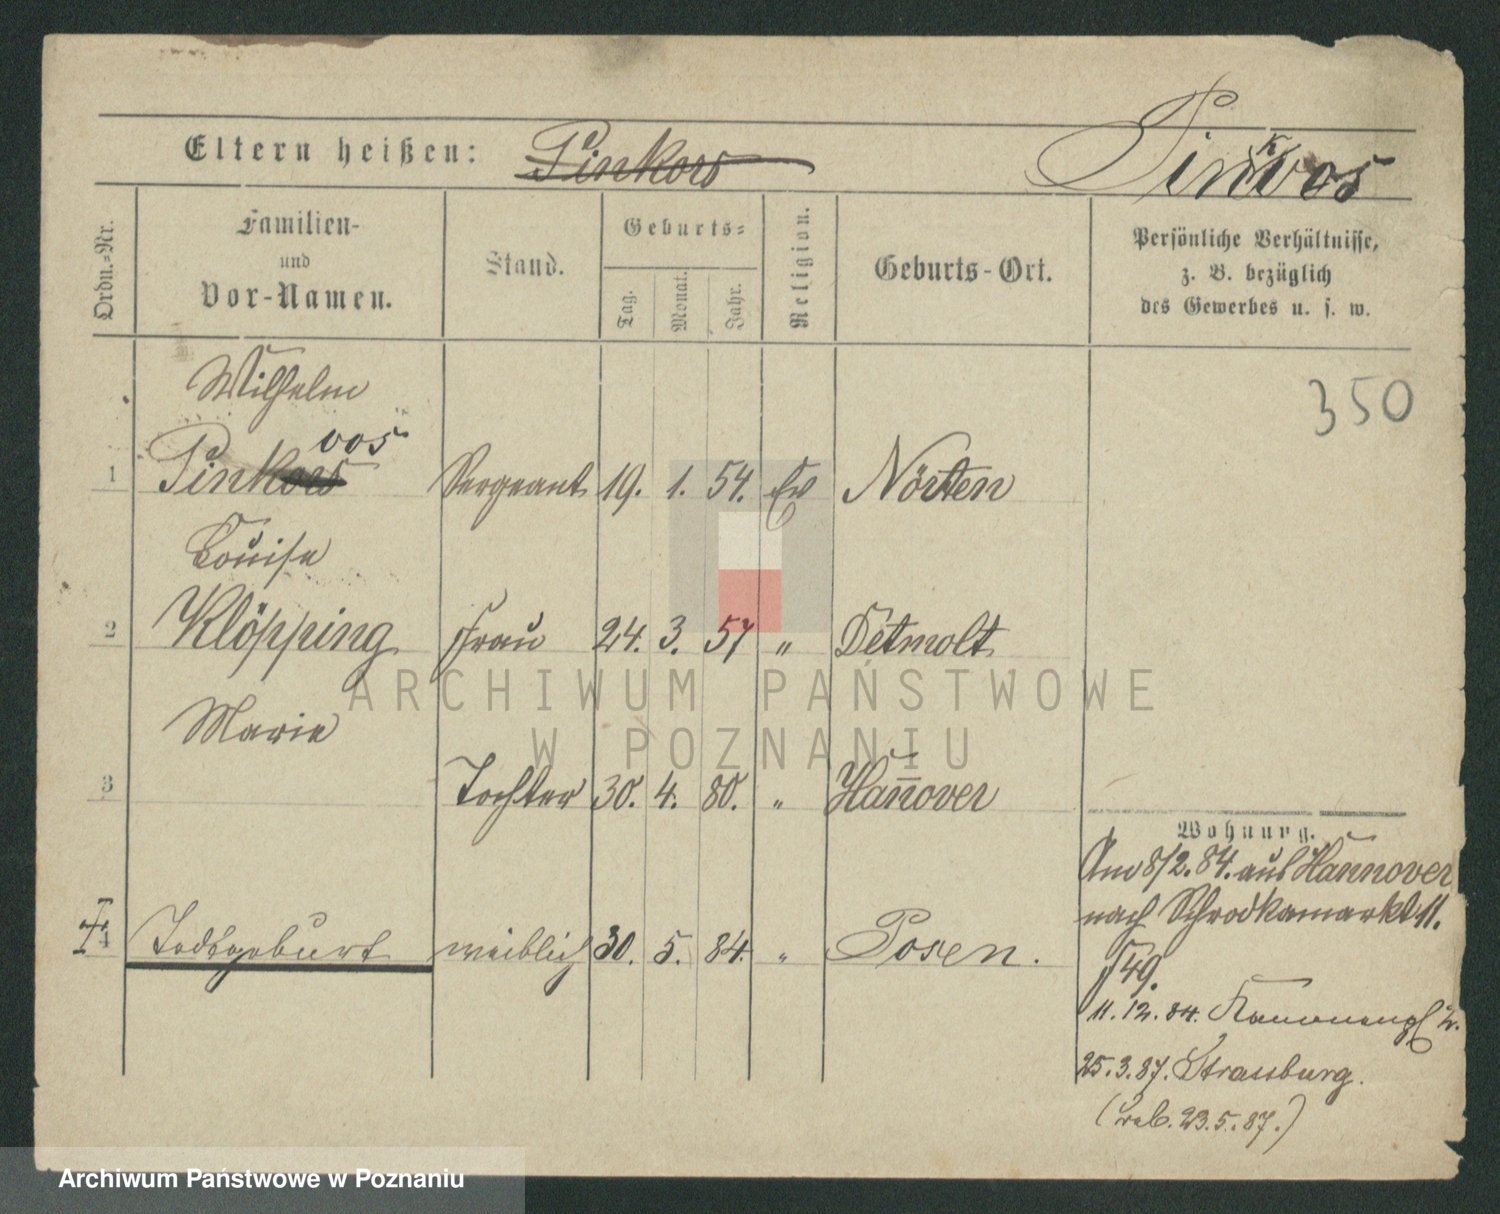 Eltern heißen: Pinkors Pinkvos
Ordn.-Nr.
Familien-
und
Vor-Namen.
Stand.
Geburts-
Tag.
Monat.
Jahr.
Religion.
Geburts-Ort.
Persönliche Verhältnisse,
z. B. bezüglich
des Gewerbes u. s. w.
350
Wilhelm
vos
1 Pinkors Sergeant 19. 1. 54. Ev Nörten
Louise
2 Klöpping Frau 24. 3. 57 " Detmolt
Marie
3 Tochter 30. 4. 80. " Han̄over
Wohnung.
Am 8/2. 84. aus Hannover
nach Schrodkamarkt 11.
4 Todtgeburt weiblich 30. 5. 84. " Posen.
F 49.
11. 12. 84. Kanonenpl 2.
25. 3. 87. Strassburg.
(reb. 23. 5. 87.)
ARCHIWUM PAŃSTWOWE
W POZNANIU
Archiwum Państwowe w Poznaniu